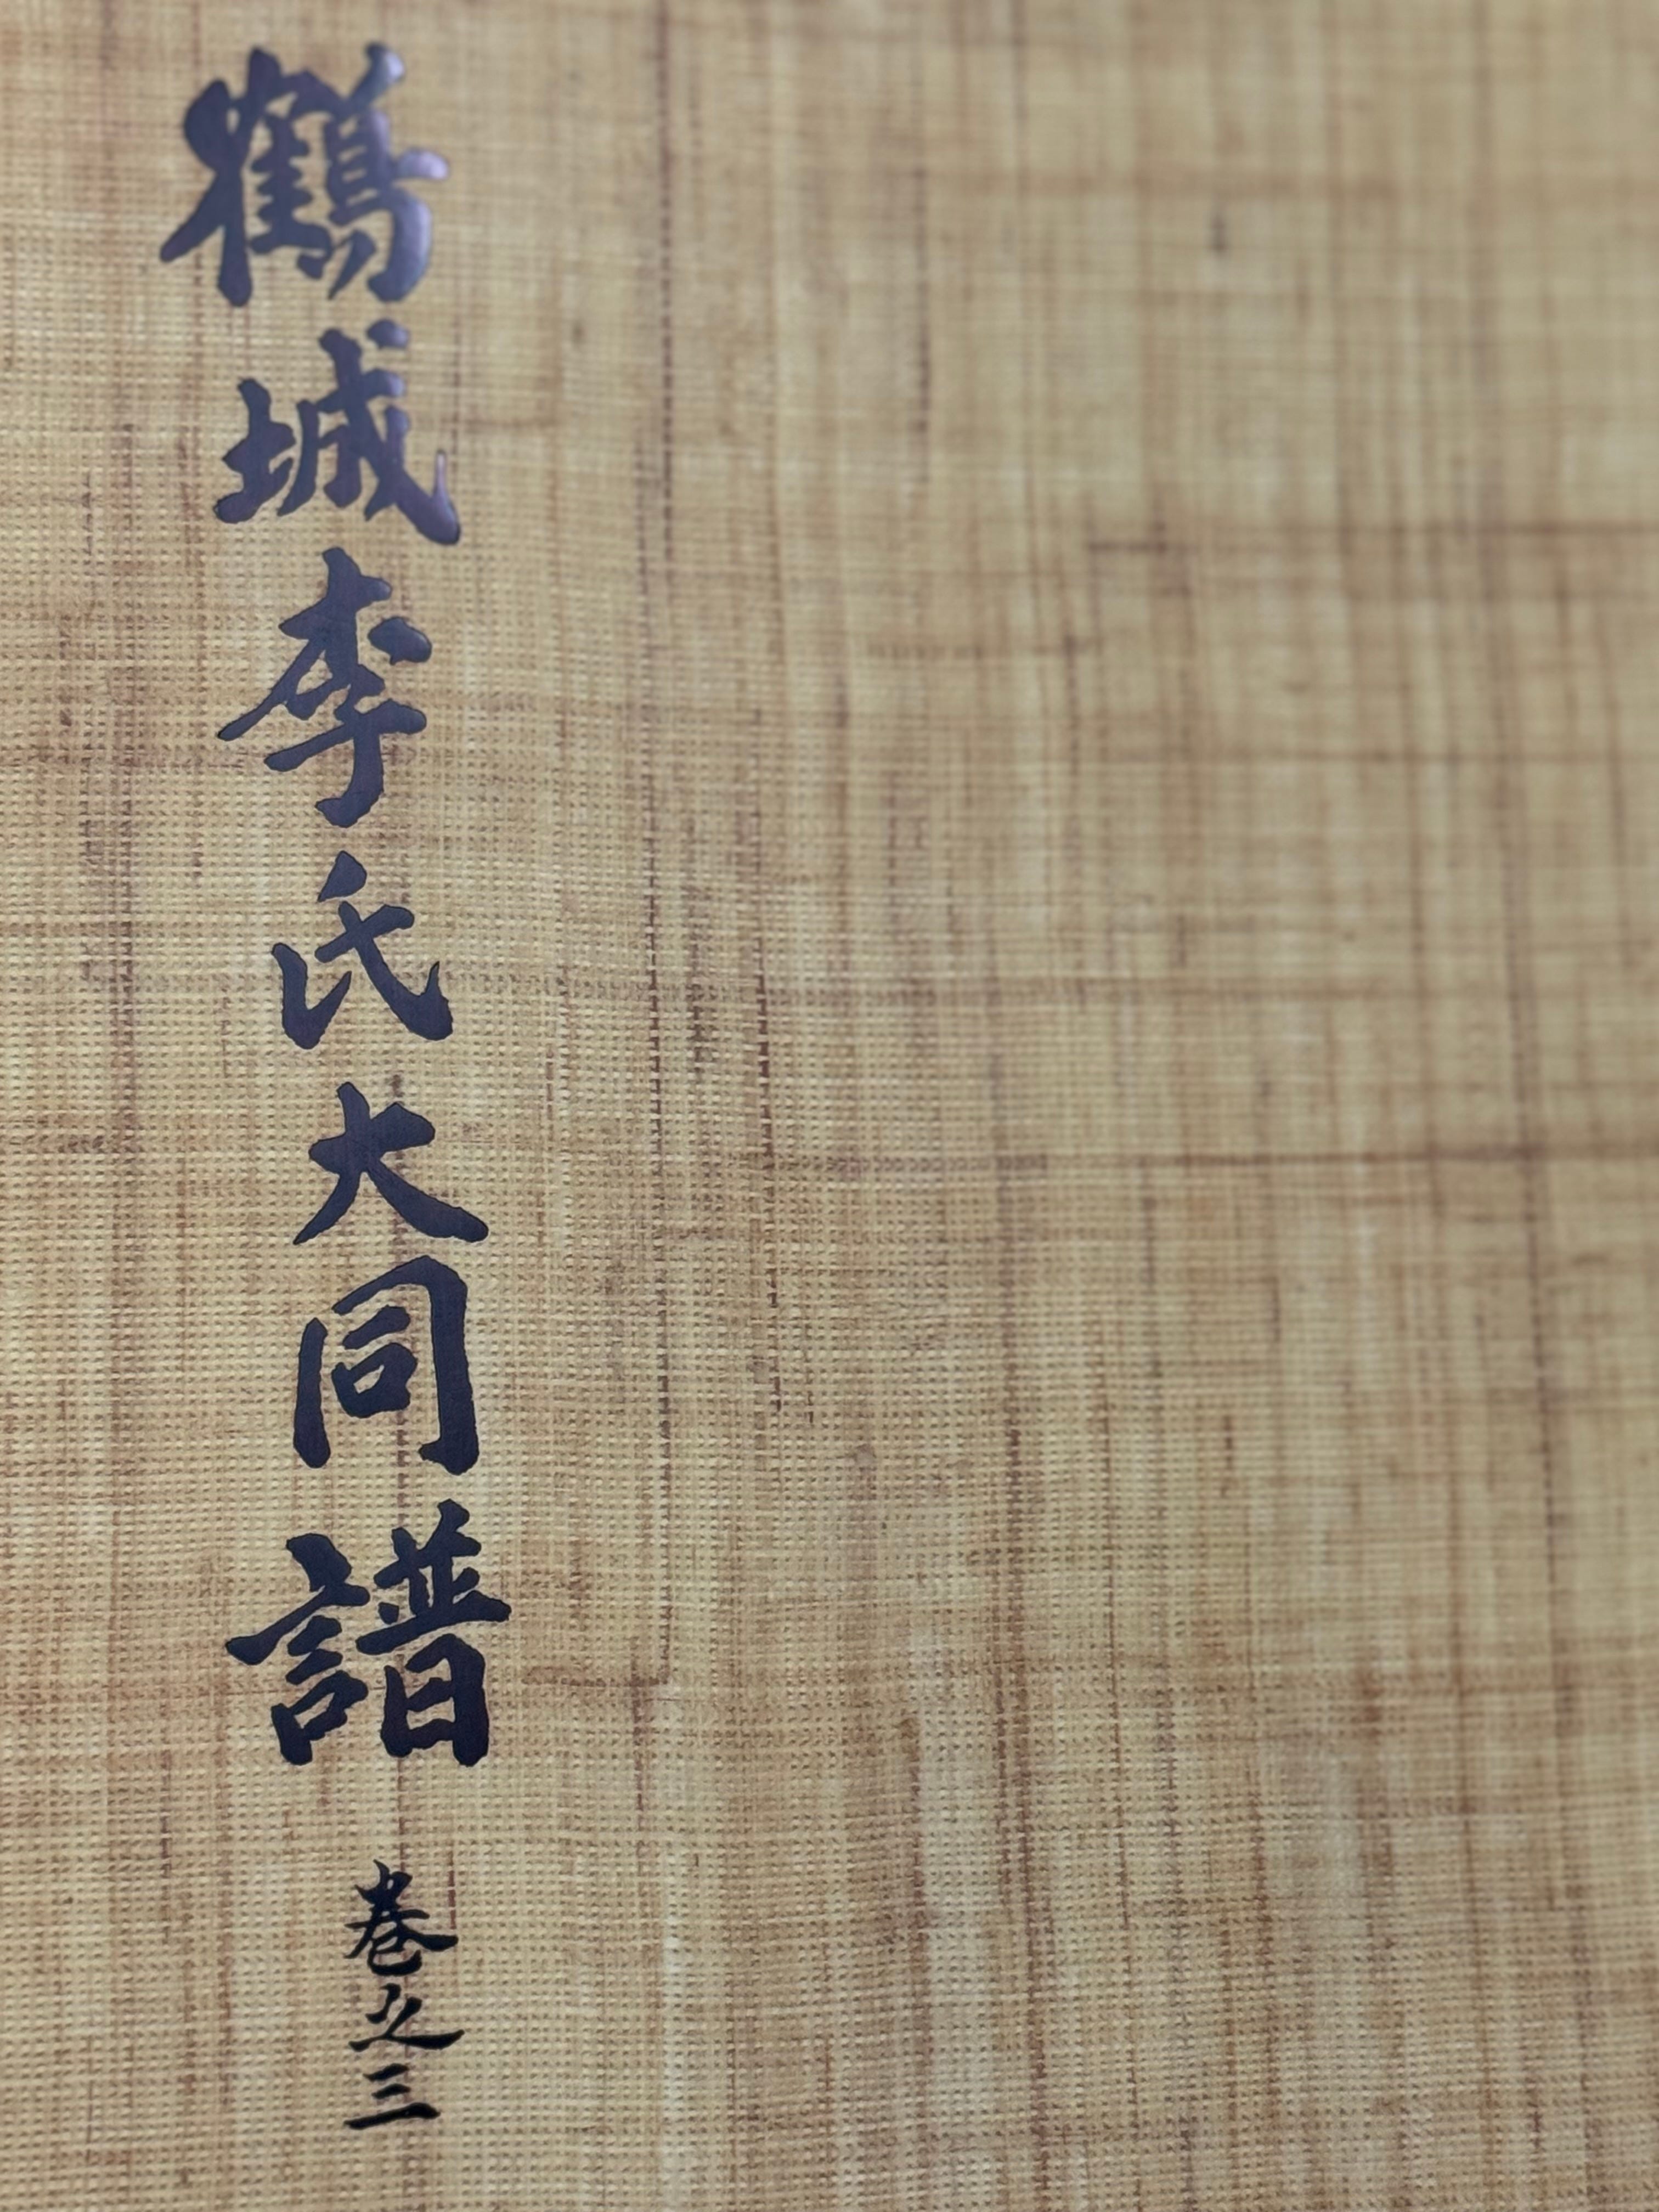 鶴城李氏大同譜
卷之三